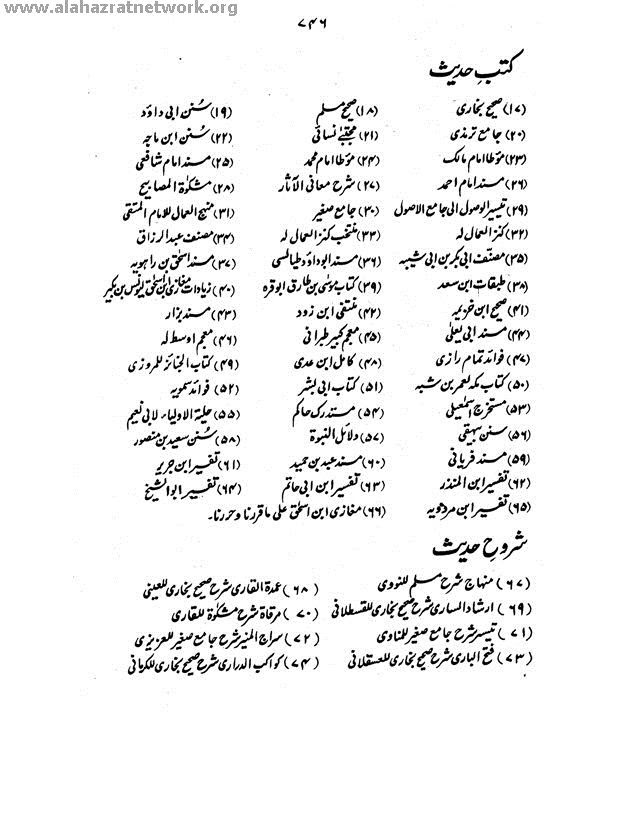 www.alahazratnetwork.org
۷۴۶
کتبِ حدیث
(۱۷) صحیح بخاری (۱۸) صحیح مسلم (۱۹) سُنن ابی داؤد
(۲۰) جامع ترمذی (۲۱) مجتبےٰ نسائی (۲۲) سُنن ابن ماجہ
(۲۳) مؤطا امام مالک (۲۴) مؤطا امام محمد (۲۵) مسند امام شافعی
(۲۶) مسند امام احمد (۲۷) شرح معانی الآثار (۲۸) مشکوٰۃ المصابیح
(۲۹) تیسیر الوصول الی جامع الاصول (۳۰) جامع صغیر (۳۱) منہج العمال للامام المتقی
(۳۲) کنز العمال لہ (۳۳) منتخب کنز العمال لہ (۳۴) مصنف عبدالرزاق
(۳۵) مصنّف ابی بکر بن ابی شیبہ (۳۶) مسند ابوداؤد طیالسی (۳۷) مسند اسحٰق بن راہویہ
(۳۸) طبقات ابن سعد (۳۹) کتاب موسٰی بن طارق ابو قرہ (۴۰) زیادات مغازی ابن اسحٰق لیونس بن بکیر
(۴۱) صحیح ابن خزیمہ (۴۲) منتقی ابن زود (۴۳) مسند بزار
(۴۴) مسند ابی یعلٰی (۴۵) معجم کبیر طبرانی (۴۶) معجم اوسط لہ
(۴۷) فوائد تمام رازی (۴۸) کامل ابن عدی (۴۹) کتاب الجنائز للمروزی
(۵۰) کتاب مکہ لعمر بن شبہ (۵۱) کتاب ابی بشر (۵۲) فوائد سمویہ
(۵۳) مستخرج اسمٰعیلی (۵۴) مستدرک حاکم (۵۵) حلیۃ الاولیاء لابی نعیم
(۵۶) سنن بیہقی (۵۷) دلائل النبوۃ (۵۸) سُنن سعید بن منصور
(۵۹) مسند فریابی (۶۰) مسند عبد بن حمید (۶۱) تفسیر ابن جریر
(۶۲) تفسیر ابن المنذر (۶۳) تفسیر ابن ابی حاتم (۶۴) تفسیر ابو الشیخ
(۶۵) تفسیر ابن مردویہ (۶۶) مغازی ابن اسحٰق علٰی ماقررنا وحررنا۔
شروحِ حدیث
(۶۷) منہاج شرح مسلم للنووی (۶۸) عمدۃ القاری شرح صحیح بخاری للعینی
(۶۹) ارشاد الساری شرح صحیح بخاری للقسطلانی (۷۰) مرقاۃ شرح مشکوٰۃ للقاری
(۷۱) تیسیر شرح جامع صغیر للمناوی (۷۲) سراج المنیر شرح جامع صغیر للعزیزی
(۷۳) فتح الباری شرح صحیح بخاری للعسقلانی (۷۴) کواکب الدراری شرح صحیح بخاری للکرمانی